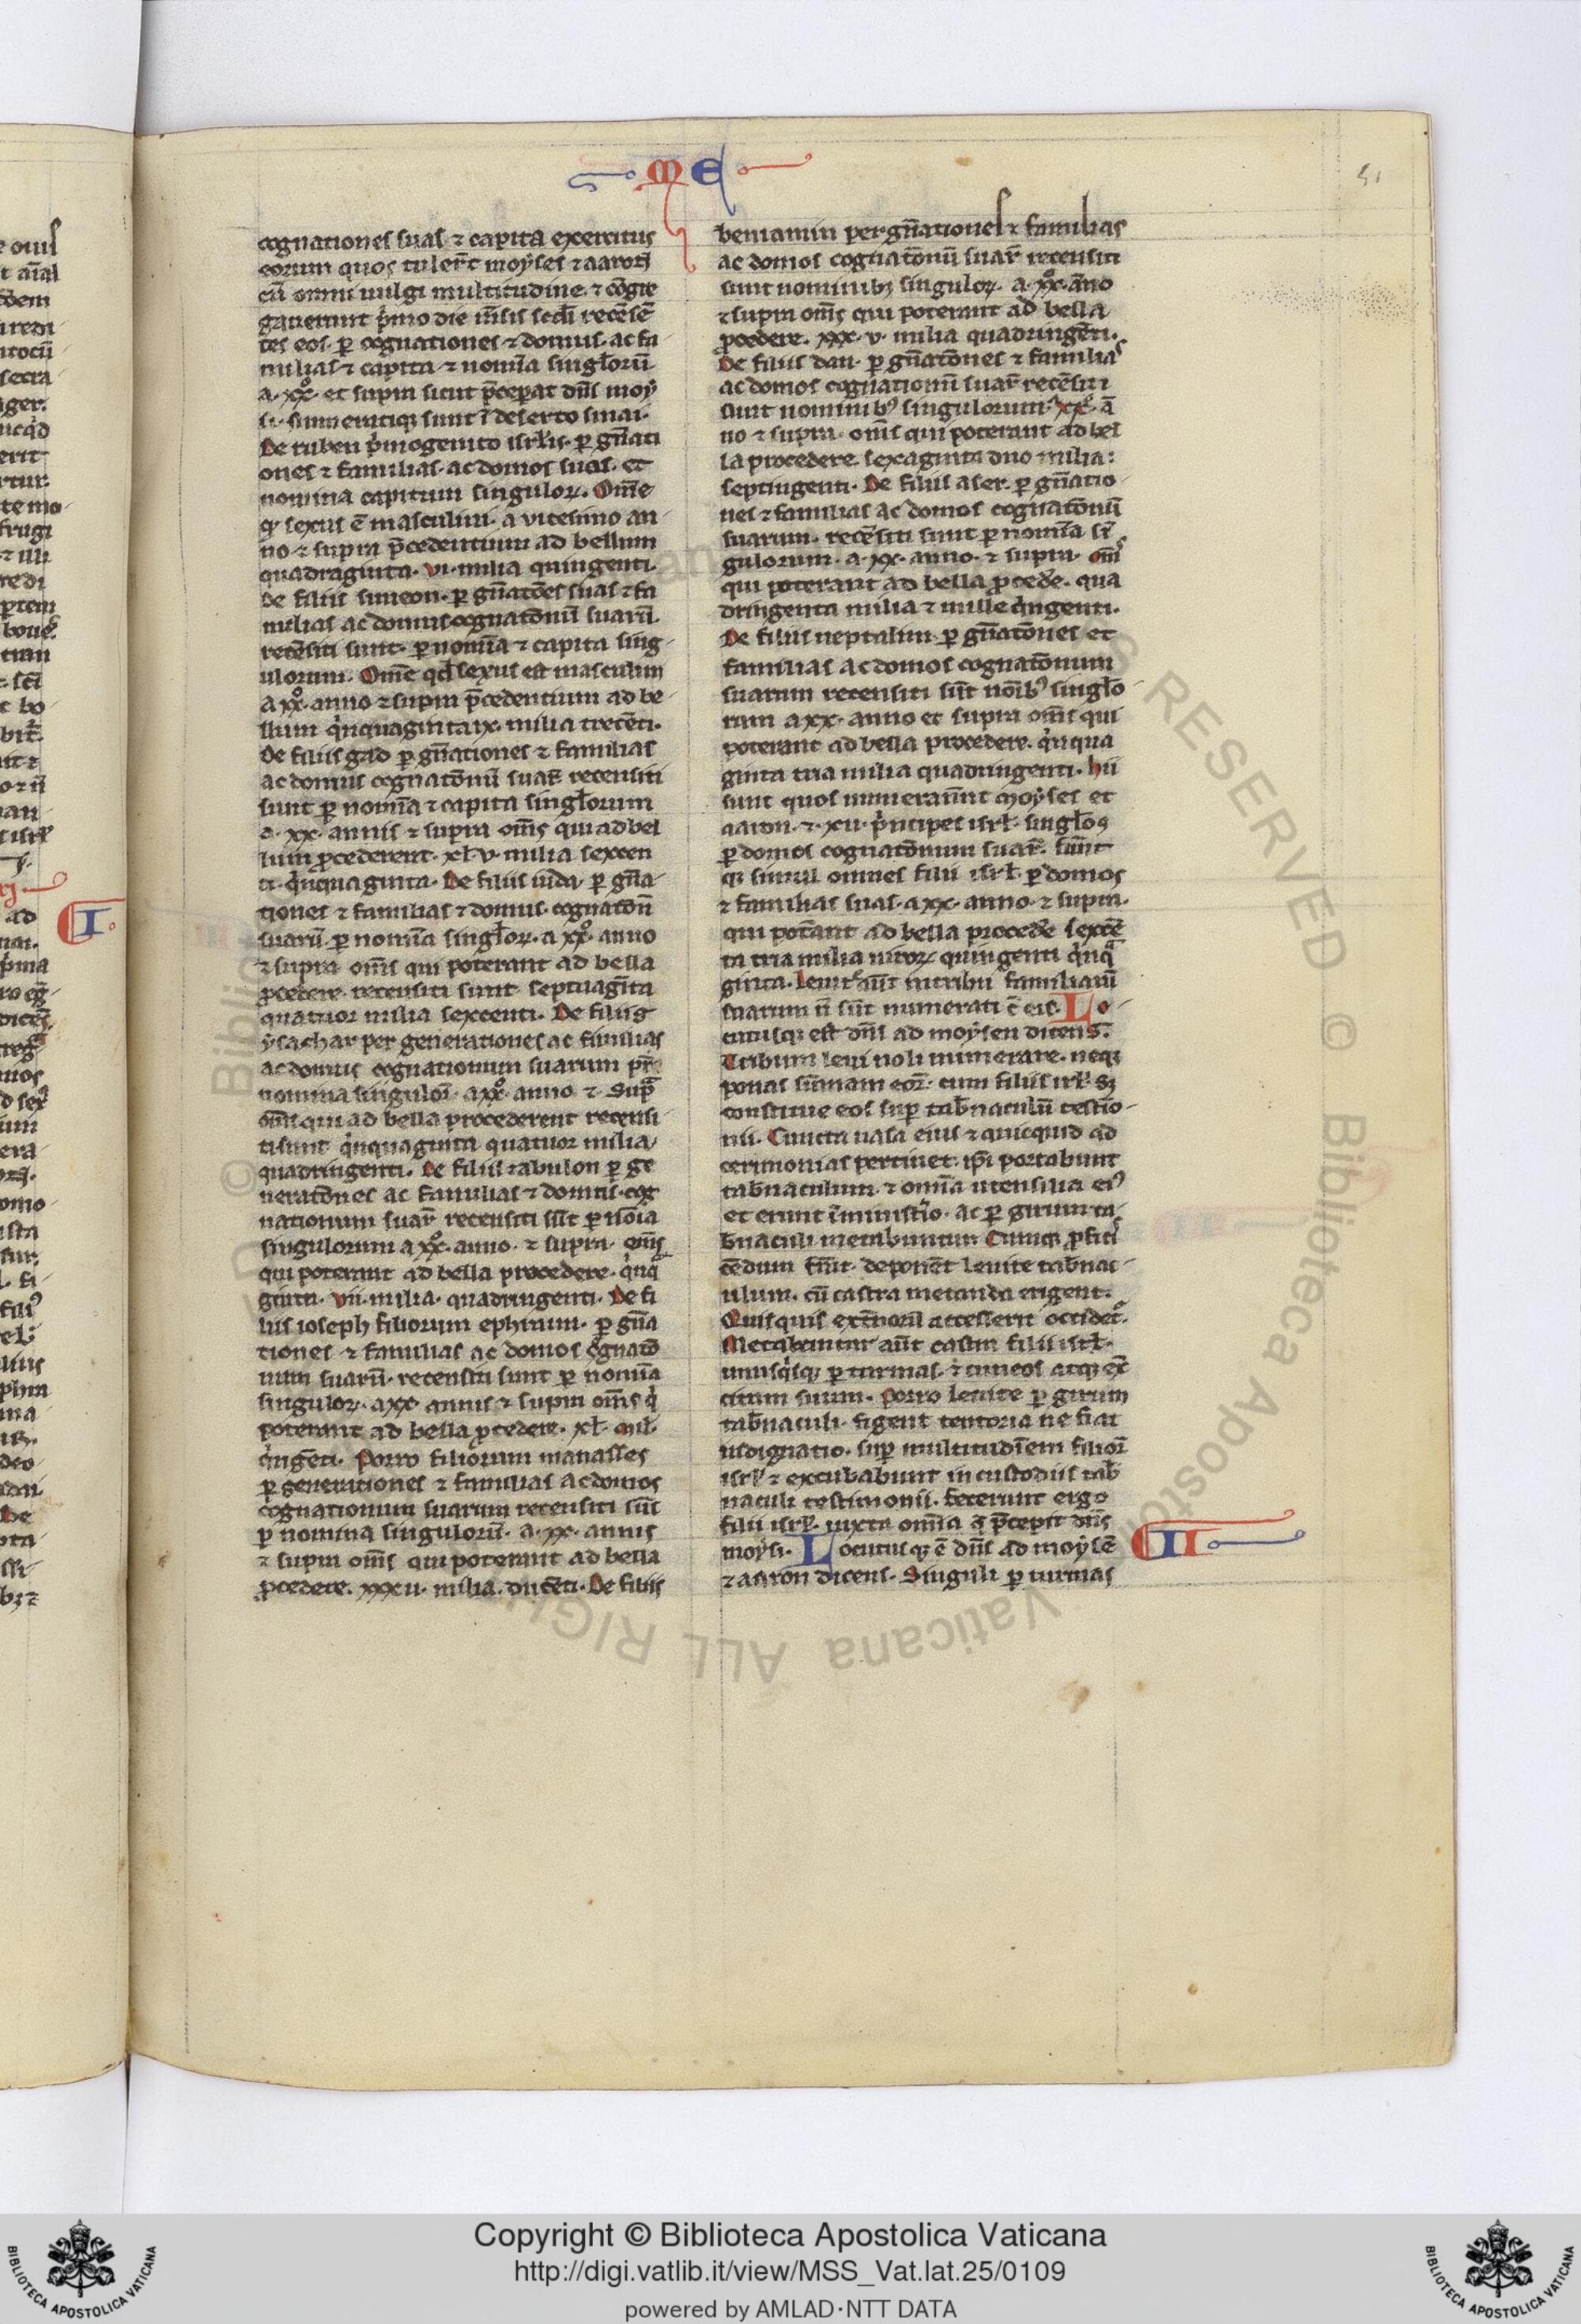 ME
51
cognationes suas ⁊ capita exercitus
eorum quos tuler̄t moyses ⁊ aaron
cū omni uulgi multitudine ⁊ cōgre
gauerunt p̄mo die m̄sis scdi recēsē
tes eos p̱ cognationes ⁊ domus ac fa
milias ⁊ capita ⁊ nomīa singlorū
a. xx°. et supra sicut p̄ceperat dn̄s moy
si. numeratiq; sunt ī deserto sinai.
De ruben p̄mogenito isrl̄is. p̱ gn̄ati
ones ⁊ familias. ac domos suas. et
nomina capitum singuloꝝ. Om̄e
qͥ sexus ē masculini. a vicesimo an
no ⁊ supra p̄cedentium ad bellum
quadraginta. vi. milia quingenti.
de filiis simeon. p̱ gn̄atōes suas ⁊ fa
milias ac domus cognatōnū suarū.
recēsiti sunt. p̱ nomīa ⁊ capita sing
ulorum. Om̄e qd̄ sexus est masculini
a xx°. anno ⁊ supra p̄cedentium ad be
llum qͥnquaginta ix. milia trecēti.
De filiis gad p̱ gn̄ationes ⁊ familias
ac domus cognatōnū suaꝝ recensiti
sunt p̱ nomīa ⁊ capita singlorum
a. xx. annis ⁊ supra om̄s qui ad bel
lum ꝓcederent. xl. v. milia sexcen
ti. qͥnquaginta. De filiis iuda. p̱ gn̄a
tiones ⁊ familias ⁊ domus. cognatōn̄
suarū. p̱ nomīa singloꝝ. a xx°. anno
⁊ supra om̄s qui poterant ad bella
ꝓcedere. recensiti sunt septuagīta
quatuor milia sexcenti. De filiis
ysachar per generationes ac familias
ac domus cognationum suarum pr̄
nomina singuloꝝ. a xx°. anno ⁊ Supͣ
om̄s qui ad bella procederent recensi
ti sunt qͥnquaginta quatuor milia
quadringenti. De filiis zabulon p̱ ge
neratōnes ac familias ⁊ domus. cog
nationum suaꝝ recensiti sūt p̱ nōia
singulorum a xx°. anno. ⁊ supra. om̄s
qui poterant ad bella procedere. qͥnqͣ
ginta. vii. milia. quadringenti. De fi
liis ioseph filiorum ephraim. p̱ gn̄a
tiones ⁊ familias ac domos cognatō
num suarū. recensiti sunt p̱ nomīa
singuloꝝ. a xx. annis ⁊ supra om̄s qͥ
poterant ad bella ꝓcedere. xl. mil.
qͥngēti. Porro filiorum manasses
p̱ generationes ⁊ familias ac domos
cognationum suarum recensiti sūt
p̱ nomina singulorū. a. xx. annis
⁊ supra om̄s qui poterant ad bella
ꝓcedere. xxxii. milia. ducēti. De filiis
beniamin per gn̄ationes ⁊ familias
ac domos cognatōnū suaꝝ recensiti
sunt nominibꝫ singuloꝝ. a. xx°. āno
⁊ supra om̄s qui poterant ad bella
ꝓcedere. xxx. v. milia quadringēti.
De filiis dan. p̱ gn̄atōnes ⁊ familiaˢ
ac domos cognationū suaꝝ recēsiti
sunt nominibꝰ singulorum. xx°. ā
no ⁊ supra. om̄s qui poterant ad bel
la procedere. sexaginta duo milia:
septingenti. De filiis aser. p̱ gn̄atio
nes ⁊ familias ac domos cognatōnū
suarum. recēsiti sunt p̱ nomīa sī
gulorum. a. xx. anno. ⁊ supra. om̄s
qui poterant ad bella ꝓcede͛. qua
dringenta milia ⁊ mille qͥngenti.
De filiis neptalim p̱ gn̄atōnes et
familias ac domos cognatōnum
suarum recensiti sūt nōibꝰ singlo
rum a xx. anno et supra om̄s qui
poterant ad bella procedere. qͥnqua
ginta tria milia quadringenti. hii
sunt quos numerauer̄t moyses et
aaron. ⁊. xii. p̄ncipes isrl̄. singl̄os
p̱ domos cognatōnum suaꝝ. fuer̄t
qꝫ simul omnes filii isrl̄. p̱ domos
⁊ familias suas. a xx. anno. ⁊ supra.
qui potāant ad bella procede͛ sexcē
ta tria milia uiroꝝ quingenti qͥnqͣ
ginta. Leuite aūt in tribu familiarū
suarum n̄ sūt numerati c̄ eis. Lo
cutusqꝫ est dn̄s ad moysen dicens.
Tribum leui noli numerare. neqꝫ
ponas sūmam eoꝝ. cum filiis isrl̄. sꝫ
constitue eos suꝑ tab̄naculū testīo
nii. Cuncta uasa eius ⁊ quicquid ad
cerimonias pertinet. ip̄i portabunt
tab̄naculum. ⁊ omīa utensilia eiꝰ
et erunt ī ministͥio. ac p̱ girum ta
b̄naculi metabuntur. Cumqꝫ ꝓfici
cēdum fūit. deponēt leuite tab̄nac
ulum. cū castra metanda erigent.
Quisquis ext̄noꝝ accesserit occidet᷑.
Metabuntur aūt castra filii isrl̄.
unusqͥsqꝫ p̱ turmas. ⁊ cuneos atqꝫ ex̄
citum suum. Porro leuite p̱ girum
tab̄naculi. figent tentoria ne fiat
indignatio. suꝑ multitudīem filioꝝ
isrl̄. ⁊ excubabunt in custodiis tab̄
naculi testimonii. fecerunt ergo
filii isrl̄. iuxta omīa q̄ p̄cepit dn̄s
moysi. Locutusqꝫ ē dn̄s ad moysē
⁊ aaron dicens. Singuli p̱ turmas
I
II
© Biblioteca Apostolica Vaticana ALL RIGHTS RESERVED
Copyright © Biblioteca Apostolica Vaticana
http://digi.vatlib.it/view/MSS_Vat.lat.25/0109
powered by AMLAD·NTT DATA
BIBLIOTECA APOSTOLICA VATICANA
BIBLIOTECA APOSTOLICA VATICANA